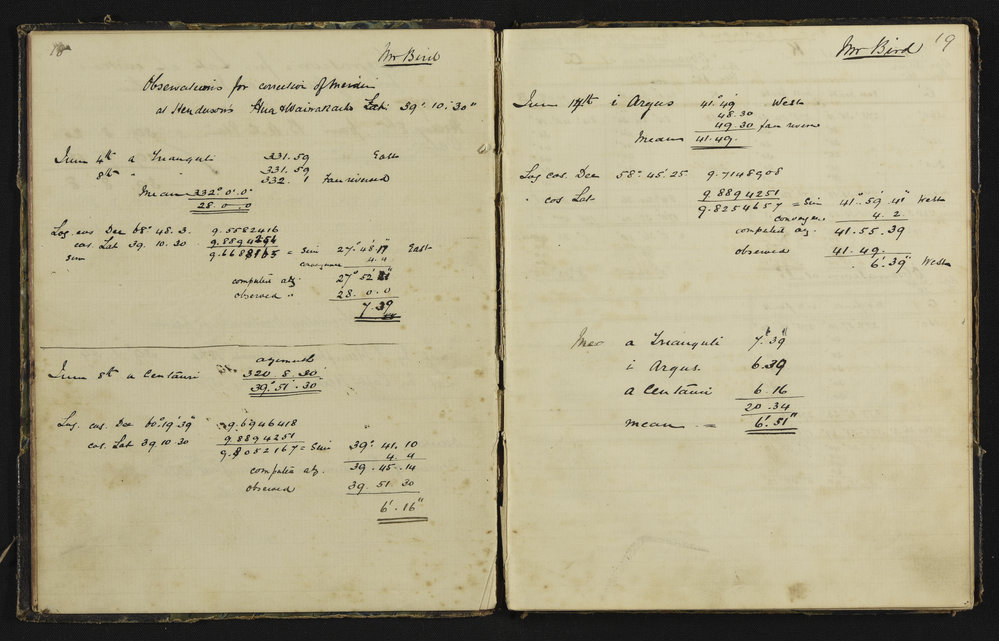 18
Mr Bird
Observations for correction of meridian
at Henderson's Hua & Wairakaiho Lat: 39°. 10'. 30"
June 4th a Trianguli 331.59 East
8th " 331.59
332. 1 Face reversed
Mean 332°. 0'. 0"
28. 0. 0
Log. cos Dec 68°. 48. 3. 9.5582416
cos. Lat 39. 10. 30 9.8894251
sum = Sine 27°. 48'. East
convergence 4. 4
computed az. 27° 52'
observed " 28. 0. 0
7. 39
azimuth
June 8th a Centauri 320. 8. 30
39°. 51'. 30
Log. cos. Dec 60°. 19'. 39" 9.6946418
cos. Lat 39.10.30 9.8894251
9.5052167 = Sine 39°. 41. 10
4. 4
computed az. 39. 45. 14
observed 39. 51. 30
6'. 16"
19
Mr Bird
June 17th i Argus 41°. 49' West
48. 30
49. 30 face reverse
Mean 41. 49.
Log cos. Dec 58°. 45'. 25 9.7148908
" cos Lat 9.8894251
9.8254657 = Sine 41°. 59'. 41" West
convergce. 4. 2
computed az. 41. 55. 39
observed 41. 49.
6'. 39" West
a Trianguli 7'. 39"
i Argus. 6.39
a Centauri 6. 16
20. 34
mean = 6'. 51"